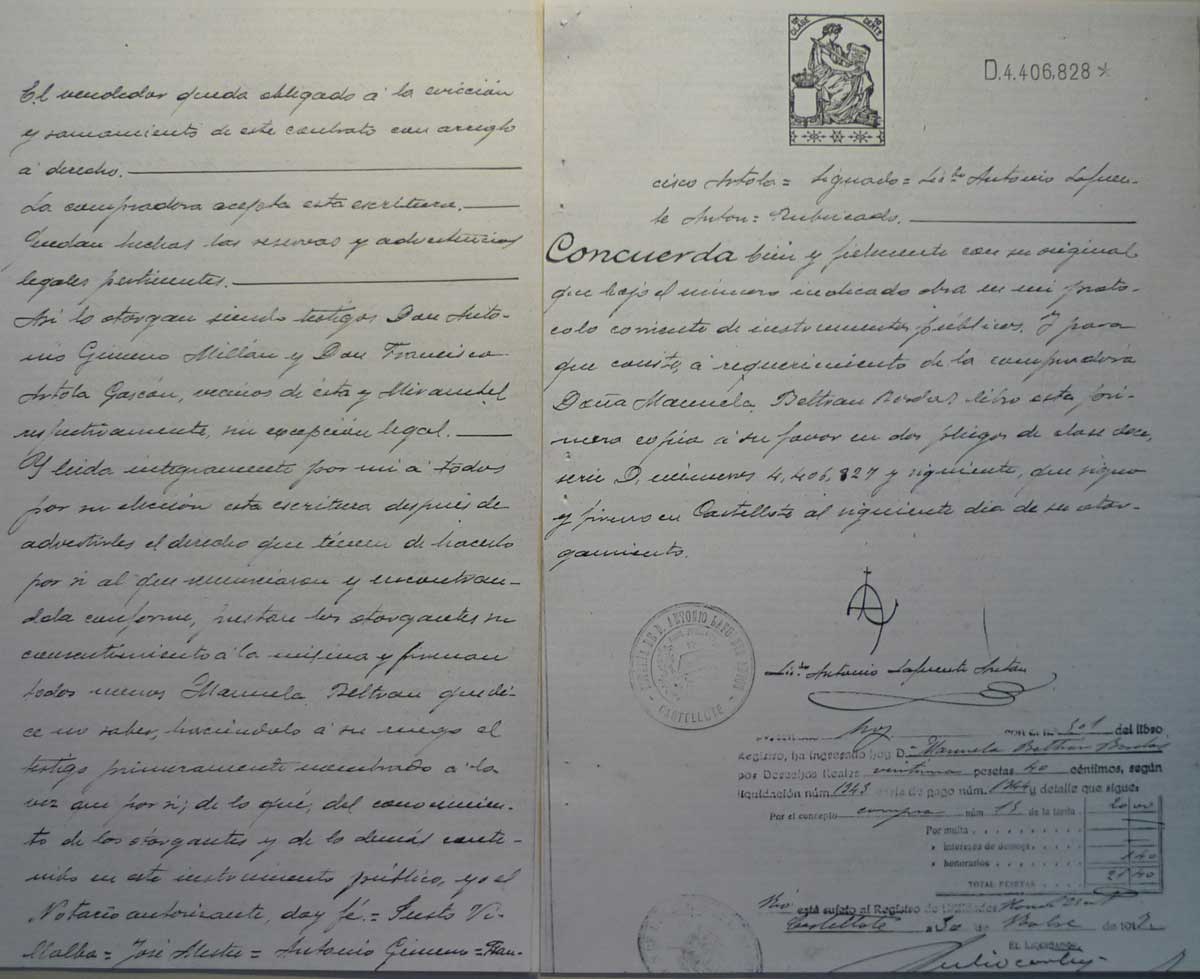 El vendedor queda obligado á la evicción
y saneamiento de este contrato con arreglo
á derecho.
La compradora acepta esta escritura.
Quedan hechas las reservas y advertencias
legales pertinentes.
Así lo otorgan siendo testigos Don Anto-
nio Gimeno Millán y Don Francisco
Artola Gascón, vecinos de ésta y Mirambel
respectivamente, sin excepción legal.
Y leida integramente por mi á todos
por su elección esta escritura después de
advertirles el derecho que tienen de hacerlo
por si al que renunciaron y encontran-
dola conforme, prestan los otorgantes su
consentimiento á la misma y firman
todos menos Manuela Beltran que di-
ce no saber, haciéndolo á su ruego el
testigo primeramente nombrado á la
vez que por si; de lo que, del conocimien-
to de los otorgantes y de lo demás conte-
nido en este instrumento público, yo el
Notario autorizante, doy fé.= Justo Vi-
llalba= José Mestre= Antonio Gimeno= Fran-
CLASE
D.4.406,828
cisco Artola= Signado= Lic.do Antonio Lafuen-
te Anton= Rubricado.
Concuerda bien y fielmente con su original
que bajo el número indicado obra en mi proto-
colo corriente de instrumentos públicos. Y para
que conste, á requerimiento de la compradora
Doña Manuela Beltran Bordas libro esta pri-
mera copia á su favor en dos pliegos de clase doce,
serie D, números 4,406,827 y siguiente, que signo
y firmo en Castellote al siguiente dia de su otor-
gamiento.
CASTELLOTE
Lic.do Antonio Lafuente Anton
hoy con el n. 501 del libro
Registro, ha ingresado hoy D.ª Manuela Beltran Bordas
por Derechos Reales veintiuna pesetas 40 céntimos, según
liquidación núm. 1343 carta de pago núm. 1344 y detalle que sigue:
Por el concepto compra núm 15 de la tarifa 20 00
Por multa
» intereses de demora
» honorarios 1 40
TOTAL PESETAS 21 40
No está sujeto al Registro de
Castellote a 30 de de 191
EL LIQUIDADOR